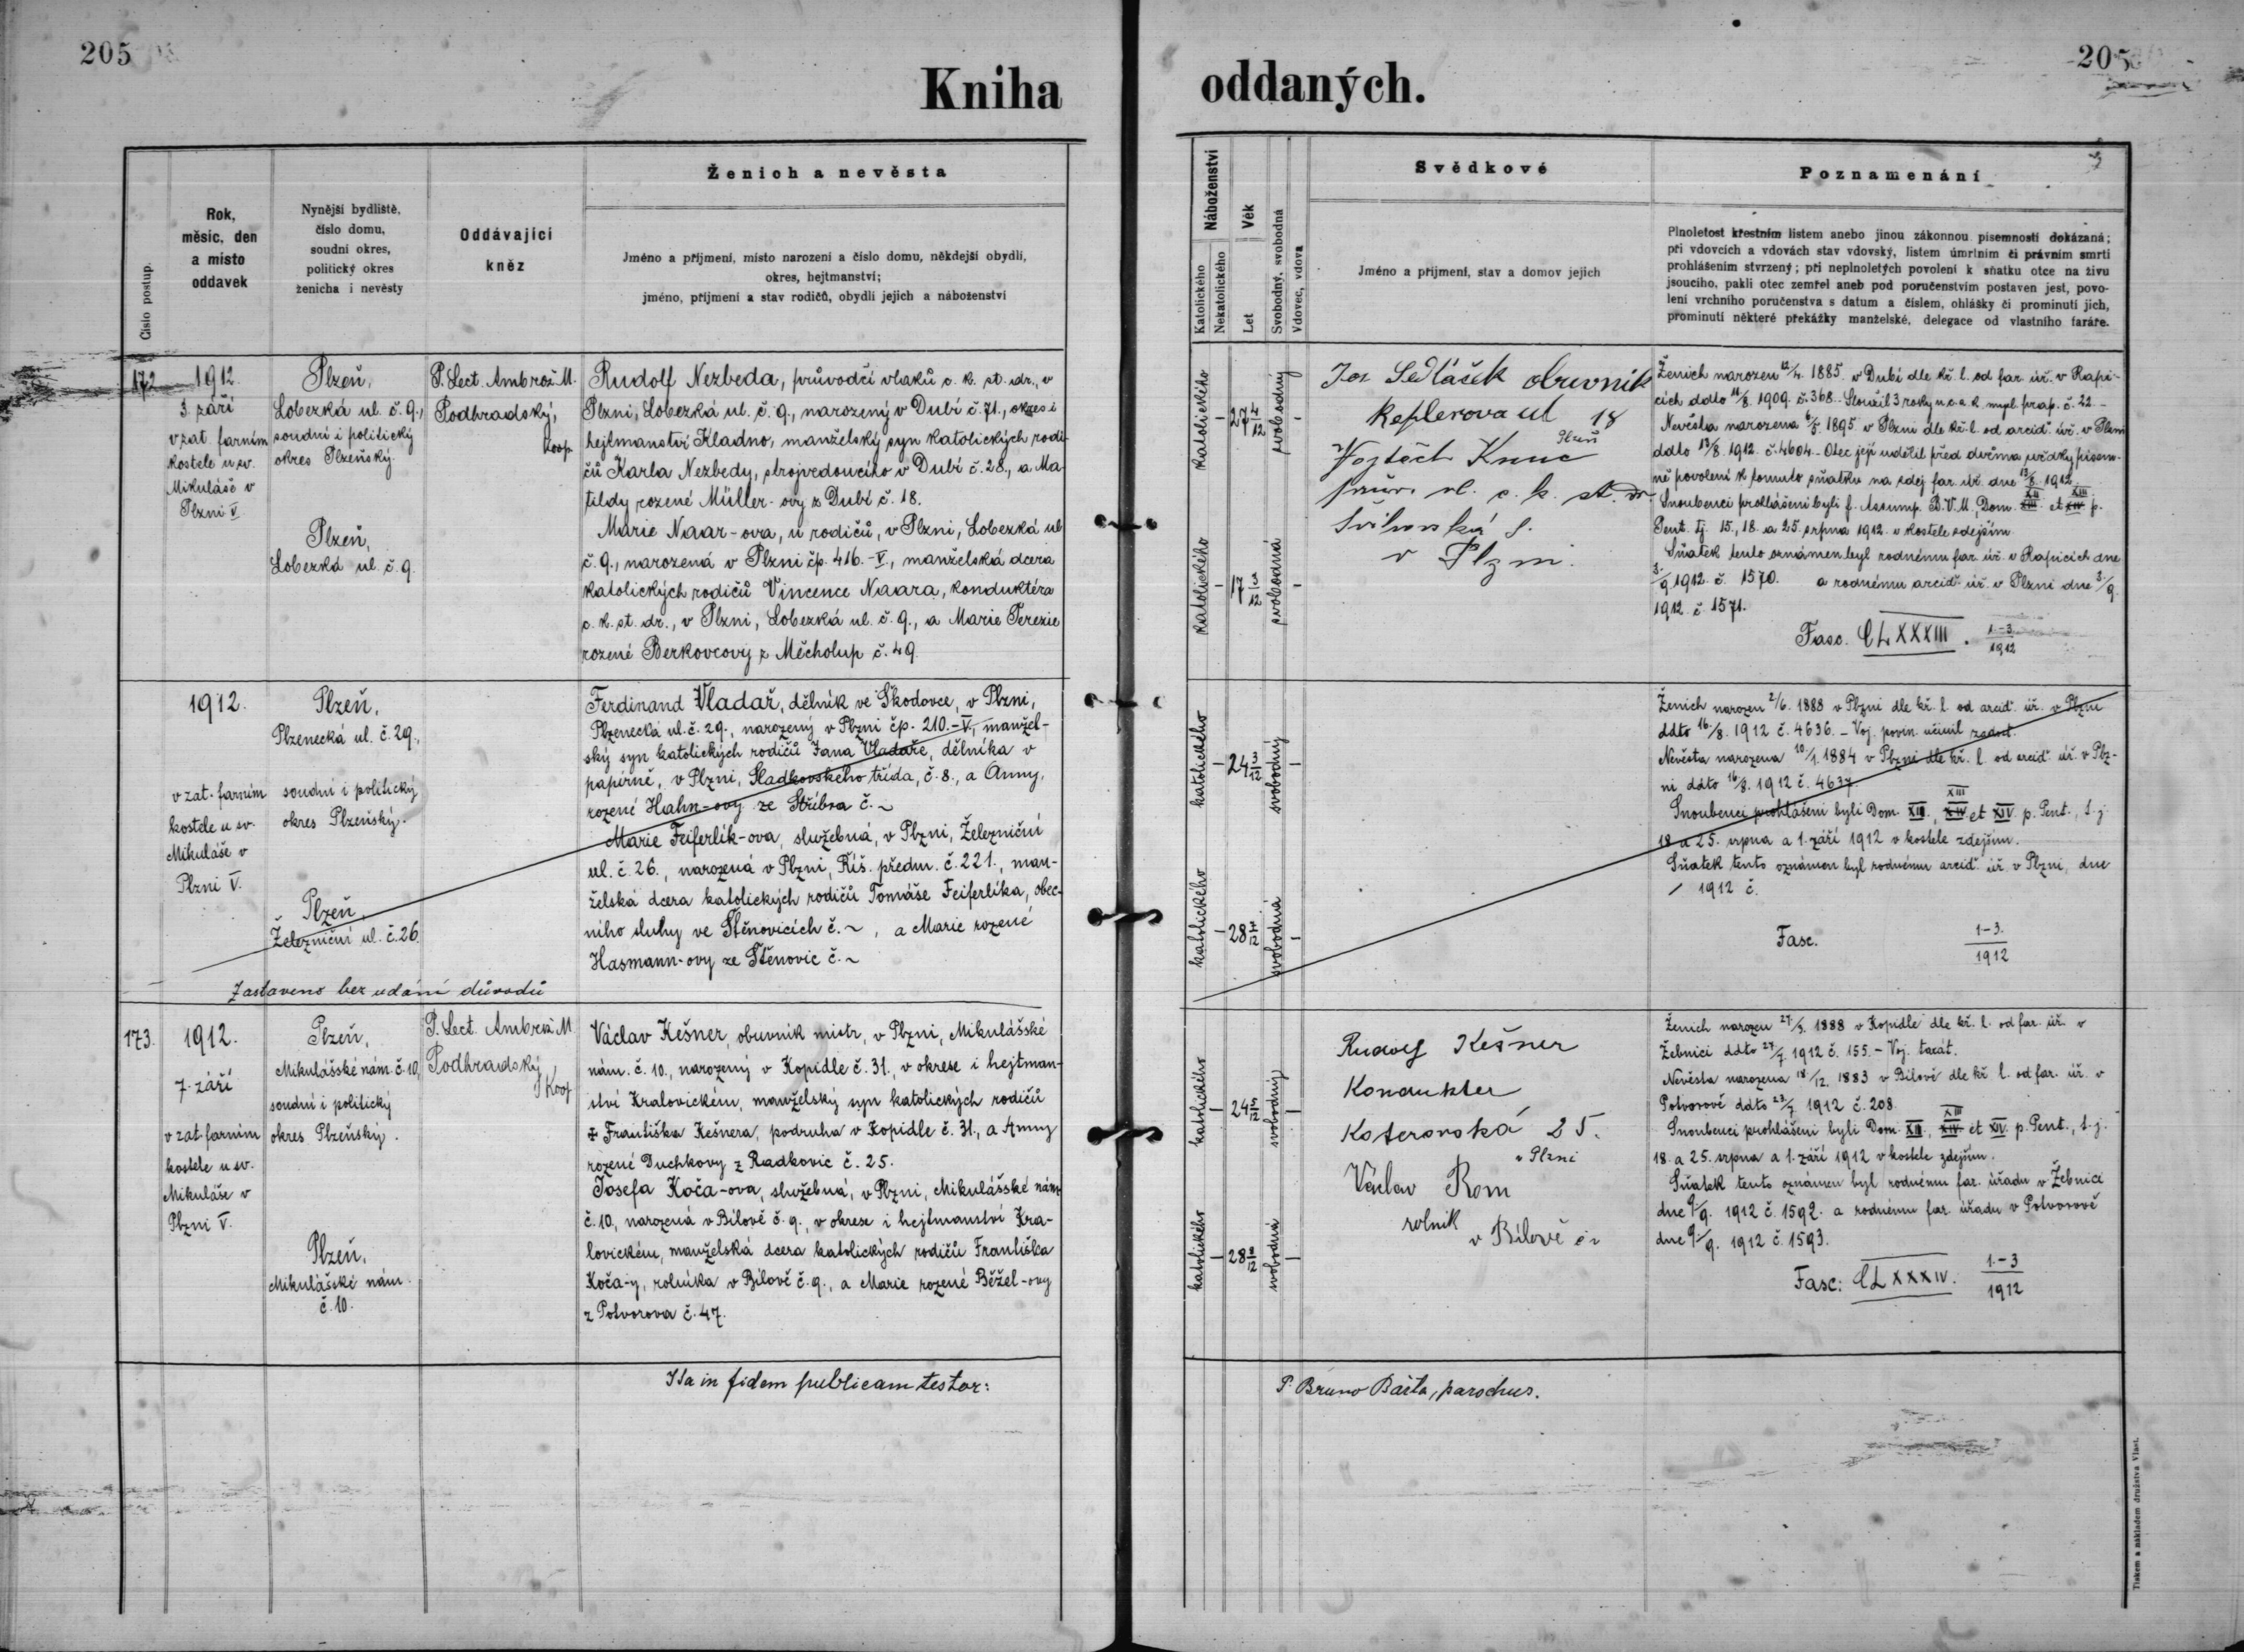 205
Kniha
Číslo postup.
Rok,
měsíc, den
a místo
oddavek
Nynější bydliště,
číslo domu,
soudní okres,
politický okres
ženicha i nevěsty
Oddávající
kněz
Ženich a nevěsta
Jméno a příjmení, místo narození a číslo domu, někdejší obydlí,
okres, hejtmanství;
jméno, příjmení a stav rodičů, obydlí jejich a náboženství
172
1912.
3. září
v zat. farním
kostele u sv.
Mikuláše v
Plzni V.
Plzeň,
Lobezká ul. č. 9.,
soudní i politický
okres Plzeňský.
Plzeň,
Lobezká ul. č. 9.
P. Lect. Ambrož M.
Podhradský,
koop.
Rudolf Nezbeda, průvodčí vlaků c. k. st. dr., v
Plzni, Lobezká ul. č. 9., narozený v Dubí č. 71., okres i
hejtmanství Kladno, manželský syn katolických rodi-
čů Karla Nezbedy, strojvedoucího v Dubí č. 28., a Ma-
tildy rozené Müller-ovy z Dubí č. 18.
Marie Naar-ova, u rodičů, v Plzni, Lobezká ul.
č. 9., narozená v Plzni čp. 416.-V., manželská dcera
katolických rodičů Vincence Naara, konduktéra
c. k. st. dr., v Plzni, Lobezká ul. č. 9., a Marie Terezie
rozené Berkovcovy z Měcholup č. 49.
1912.
v zat. farním
kostele u sv.
Mikuláše v
Plzni V.
Plzeň,
Plzenecká ul. č. 29.,
soudní i politický
okres Plzeňský.
Plzeň,
Železniční ul. č. 26.
Ferdinand Vladař, dělník ve Škodovce, v Plzni,
Plzenecká ul. č. 29., narozený v Plzni čp. 210.-V., manžel-
ský syn katolických rodičů Jana Vladaře, dělníka v
papírně, v Plzni, Sladkovského třída, č. 8., a Anny,
rozené Hahn-ovy ze Stříbra č. ~
Marie Feiferlík-ova, služebná, v Plzni, Železniční
ul. č. 26., narozená v Plzni, Říš. předm. č. 221., man-
želská dcera katolických rodičů Tomáše Feiferlíka, obec-
ního sluhy ve Štěnovicích č. ~, a Marie rozené
Hasmann-ovy ze Štěnovic č. ~
Zastaveno bez udání důvodů
173.
1912.
7. září
v zat. farním
kostele u sv.
Mikuláše v
Plzni V.
Plzeň,
Mikulášské nám. č. 10,
soudní i politický
okres Plzeňský.
Plzeň,
Mikulášské nám.
č. 10.
P. Lect. Ambrož M.
Podhradský
Koop
Václav Kešner, obuvník mistr, v Plzni, Mikulášské
nám. č. 10., narozený v Kopidle č. 31., v okrese i hejtman-
ství Kralovickém, manželský syn katolických rodičů
+ Františka Kešnera, podruha v Kopidle č. 31., a Anny
rozené Duchkovy z Radkovic č. 25.
Josefa Koča-ova, služebná, v Plzni, Mikulášské nám.
č. 10., narozená v Bílově č. 9., v okrese i hejtmanství Kra-
lovickém, manželská dcera katolických rodičů Františka
Koča-y, rolníka v Bílově č. 9., a Marie rozené Běžel-ovy
z Potvorova č. 47.
Ita in fidem publicam testor:
205
oddaných.
Náboženství
Katolického
Nekatolického
Věk
Let
Svobodný, svobodná
Vdovec, vdova
Svědkové
Jméno a příjmení, stav a domov jejich
Poznamenání
Plnoletost křestním listem anebo jinou zákonnou písemností dokázaná;
při vdovcích a vdovách stav vdovský, listem úmrtním či právním smrti
prohlášením stvrzený; při neplnoletých povolení k sňatku otce na živu
jsoucího, pakli otec zemřel aneb pod poručenstvím postaven jest, povo-
lení vrchního poručenstva s datum a číslem, ohlášky či prominutí jich,
prominutí některé překážky manželské, delegace od vlastního faráře.
katolického
– 27 4/12
svobodný
–
katolického
– 17 3/12
svobodná
–
Jos Sedláček obuvník
Keplerova ul 18
Plzeň
Vojtěch
prův. vl. c. k. st. dr.
v Plzni.
Ženich narozen 12/4. 1885. v Dubí dle kř. l. od far. úř. v Rapi-
cích ddto 11/8. 1909. č. 368. Sloužil 3 roky u c. a k. č. 22. –
Nevěsta narozena 6/5. 1895 v Plzni dle kř. l. od arciď. úř. v Plzni
ddto 13/8. 1912. č. 4604. – Otec její udělil před dvěma svědky písem-
né povolení k tomuto sňatku na zdej. far. úř. dne 13/8. 1912.
Snoubenci prohlášeni byli f. Assump. B. V. M., Dom. XII XIII et XIII XIV p.
Pent. tj. 15., 18. a 25. srpna 1912. v kostele zdejším.
Sňatek tento oznámen byl rodnému far. úř. v Rapicích dne
3./9 1912. č. 1570. a rodnému arciď. úř. v Plzni dne 3/9.
1912. č. 1571.
Fasc. CLXXXIII. 1.-3/1912
katolického
– 24 3/12
svobodný
–
katolického
– 28 7/12
svobodná
–
Ženich narozen 2/6. 1888 v Plzni dle kř. l. od arciď. úř. v Plzni
ddto 16./8. 1912 č. 4636. – Voj. povin. učinil zadost.
Nevěsta narozena 10/1. 1884 v Plzni dle kř. l. od arciď. úř. v Plz-
ni ddto 16/8. 1912 č. 4637.
Snoubenci prohlášeni byli Dom. XII., XIII XIV et XIV p. Pent., t. j.
18. a 25. srpna a 1. září 1912 v kostele zdejším.
Sňatek tento oznámen byl rodnému arciď. úř. v Plzni, dne
/ 1912 č.
Fasc. 1-3./1912
katolického
– 24 5/12
svobodný
–
katolického
– 28 8/12
svobodná
–
Rudolf Kešner
Kondukter
Koterovská 25.
v Plzni
Václav Rom
rolník
v Bílově
Ženich narozen 27/3. 1888 v Kopidle dle kř. l. od far. úř. v
Žebnici ddto 27/7. 1912 č. 155. – Voj. taxát.
Nevěsta narozena 18./12. 1883 v Bílově dle kř. l. od far. úř. v
Potvorově ddto 23/7 1912 č. 208.
Snoubenci prohlášeni byli Dom. XII., XIII XIV et XIV. p. Pent., t. j.
18. a 25. srpna a 1. září 1912 v kostele zdejším.
Sňatek tento oznámen byl rodnému far. úřadu v Žebnici
dne 9/9. 1912 č. 1592. a rodnému far. úřadu v Potvorově
dne 9/9. 1912 č. 1593.
Fasc: CLXXXIV. 1.-3/1912
P. Bruno Bárta, parochus.
Tiskem a nákladem družstva Vlast.